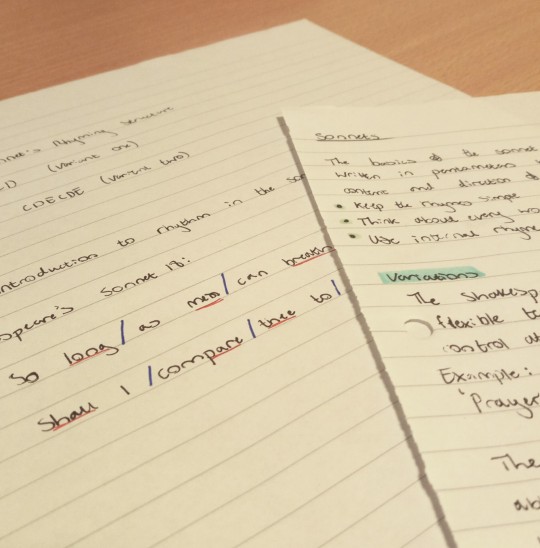 nnet's Rhyming Structure
D (Variant one)
CDECDE (Variant two)
Introduction to rhythm in the so
speare's Sonnet 18:
So long / as men / can breathe
Shall I / compare / thee to /
Sonnets
The basics of the sonnet
written in pentameters
content and direction of
• Keep the rhymes simple
• Think about every wo
• Use internal rhyme
Variations
The Shakesp
flexible
control
Example:
'Prayer
The